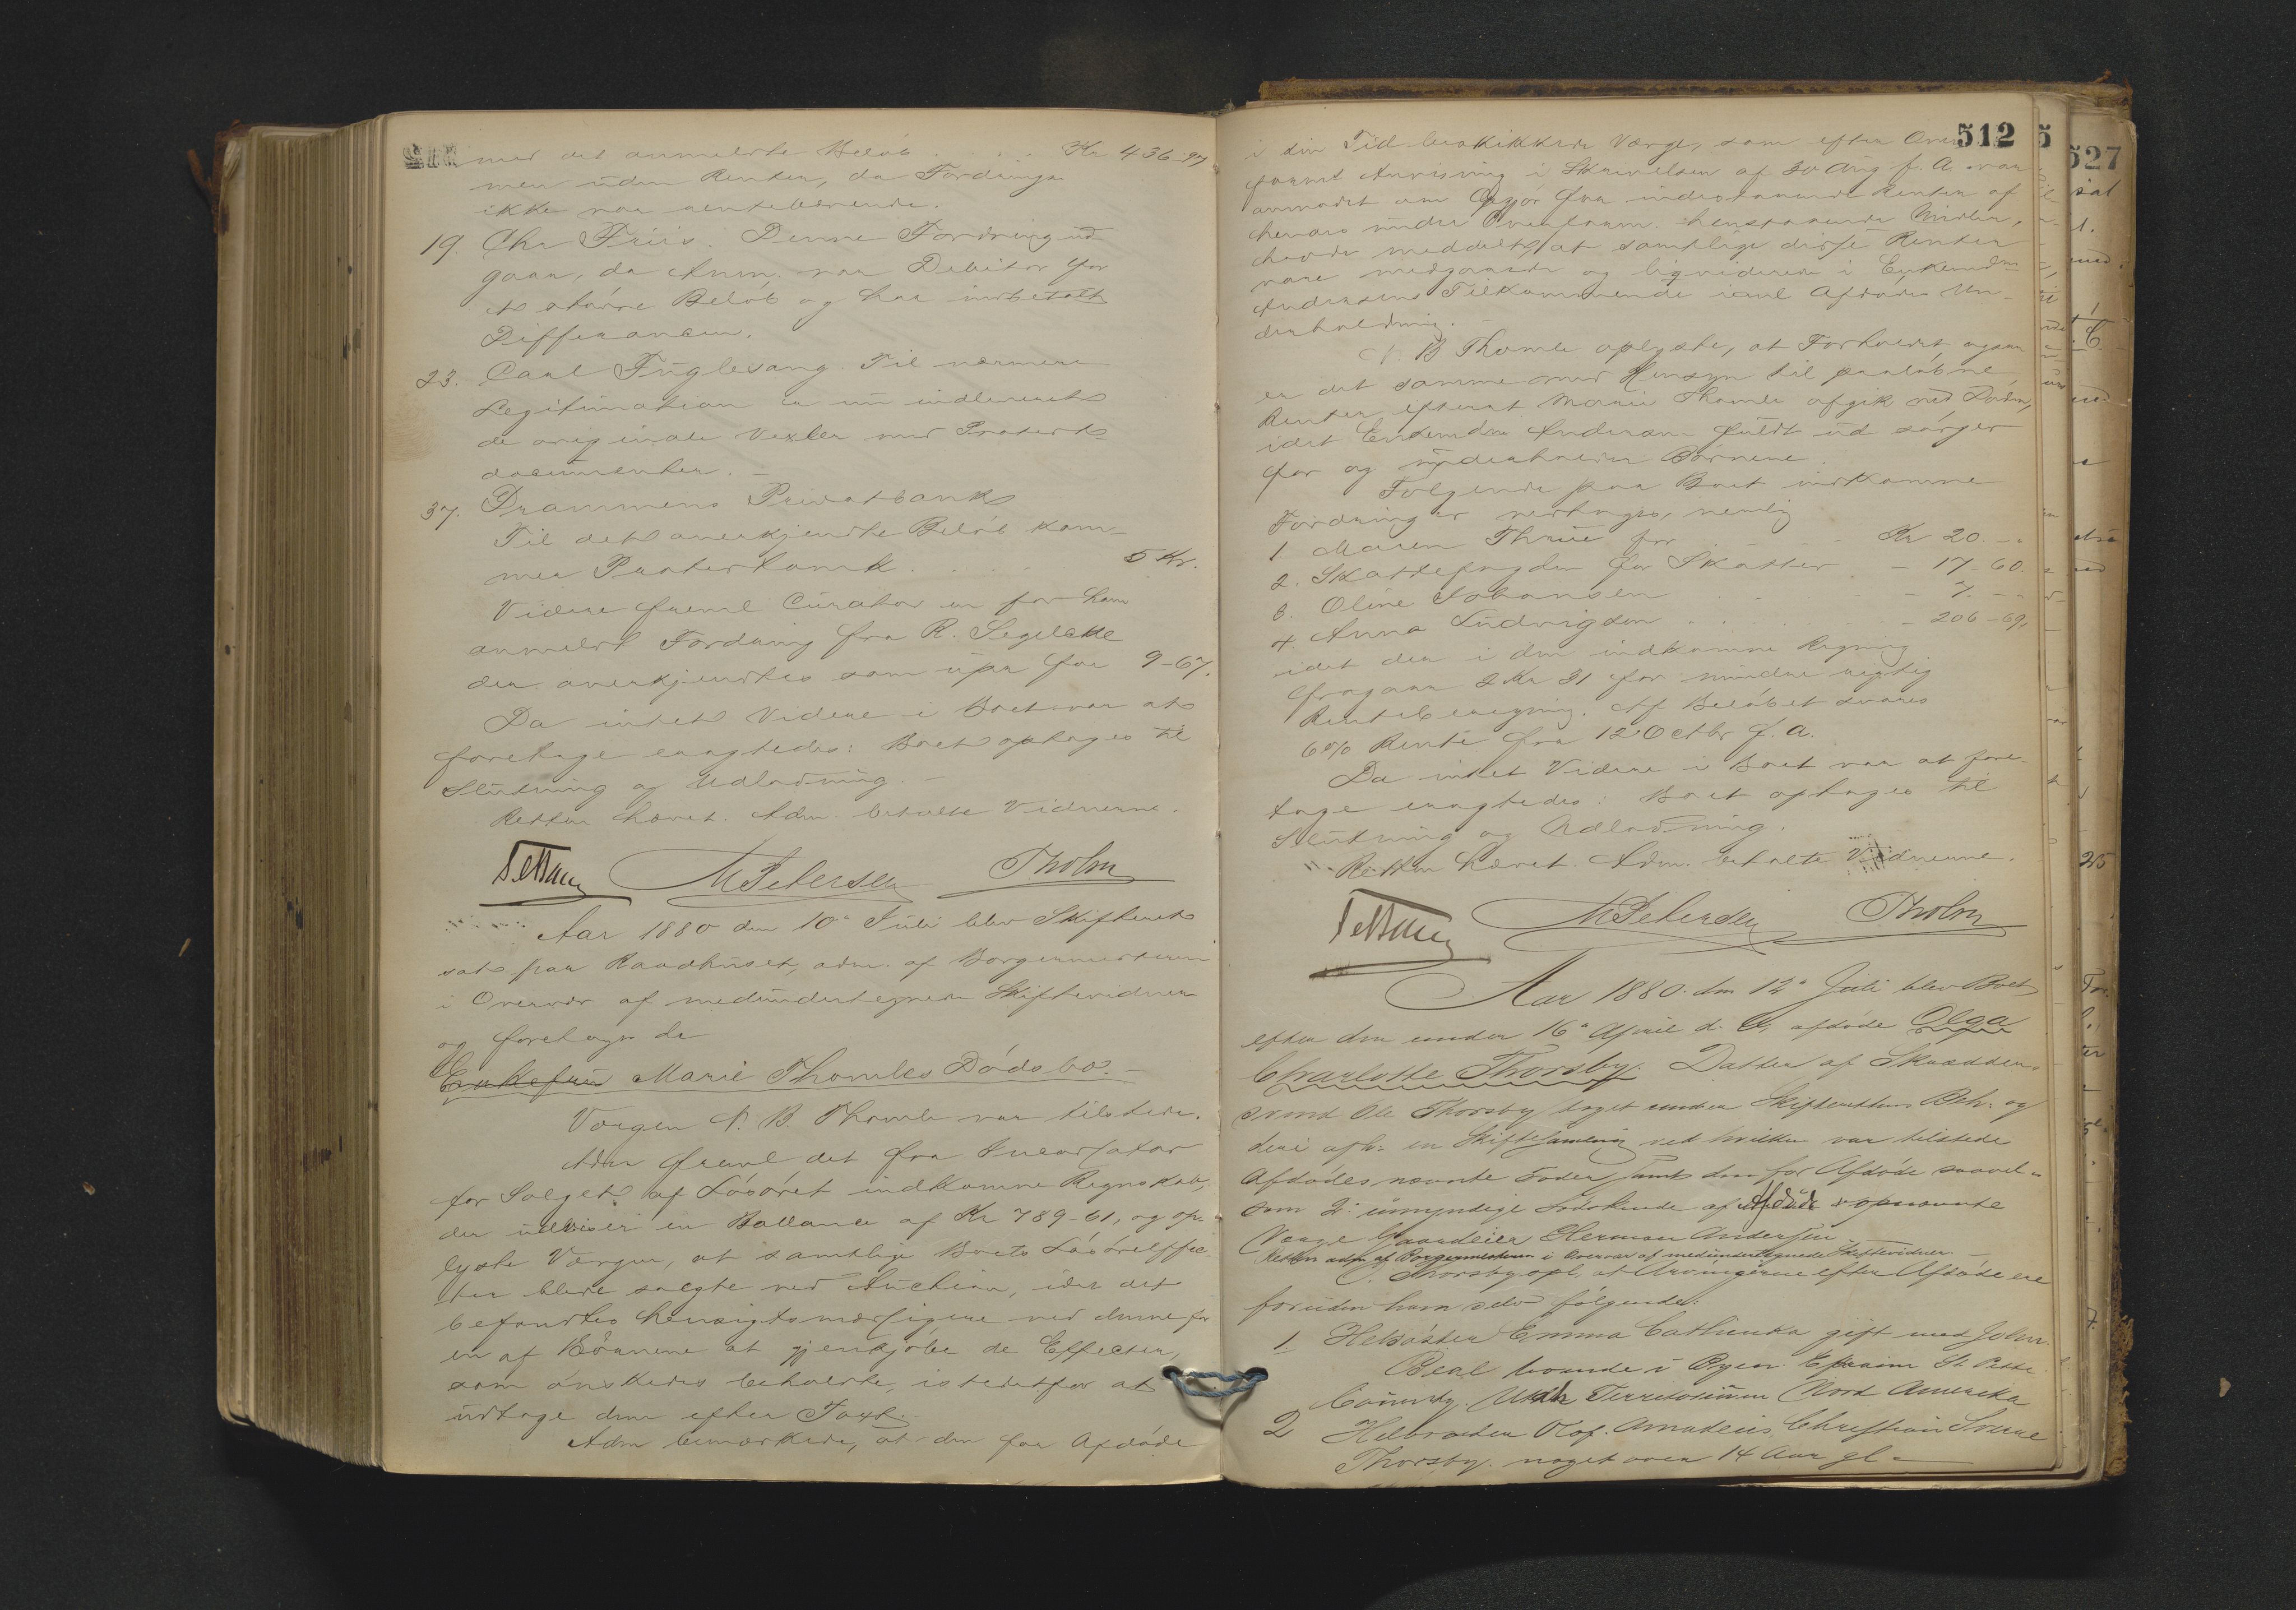 med det anmeldte Beløb . . . Kr 436.97
men uden Renter, da Fordringen
ikke var rentebærende.
19. Chr Friis. Denne Fordring ud-
gaar, da Anm. var Debitor for
et større Beløb og har indbetalt
Differancen.
23. Carl Fuglesang. Til nærmere
Legitimation er nu indleveret
de originale Vexler med Protest-
documenter. –
37. Drammens Privatbank
Til det anerkjendte Beløb kom-
mer Protestomk. . . . 5 Kr.
Videre freml Curator en for ham
anmeldt Fordring fra R. Segelcke
der anerkjendtes som upr for 9-67.
Da intet Videre i Boet var at
foretage eragtedes: Boet optages til
Slutning og Udlodning. –
Retten hævet. Adm. betalte Vidnerne.
M Petersen Tholm
Aar 1880 den 10de Juli blev Skifteret
sat paa Raadhuset, adm. af Borgermesteren
i Overvær af medundertegnede Skiftevidner
og foretoges de
Enkefru Marie Thomles Dødsbo. –
Værgen N. B. Thomle var tilstede.
Adm freml det fra Incassator
for Salget af Løsøret indkomne Regnskab,
der udviser en Ballance af Kr 789-61, og op-
lyste Værgen, at samtlige Boets Løsøreffec-
ter bleve solgte ved Auction, idet det
befandtes hensigtsmæssigere ved denne for
en af Børnene at gjenkjøbe de Effecter,
som ønskedes beholdte, istedetfor at
udtage dem efter Taxt.
Adm bemærkede, at den for Afdøde
512
527
i sin Tid beskikkede Værge, som efter Over-
form Anvisning i Skrivelsen af 30 Aug f. A. var
anmodet om Opgjør for indestaaende Renter af
hendes under Overform. henstaaende Midler,
havde meddelt, at samtlige disse Renter
vare medgaaede og ligviderede i Enkemadm
Andersens Tilkommende ianl Afdødes Un-
derholdning. –
N. B Thomle oplyste, at Forholdet ogsaa
er det samme med Hensyn til paaløbne
Renter, efterat Marie Thomle afgik ved Døden,
idet Enkemdm Andersen fuldt ud sørger
for og underholder Børnene.
Følgende paa Boet indkomne
Fordringer vedtoges, nemlig
1. Maren Thrue for . . . Kr 20. –
2. Skattefogden for Skatter - 17-60.
3. Oline Johansen . . . - 7. –
4. Anna Ludvigsen . . . - 206-69,
idet der i den indkomne Regning
fragaar 2 Kr 31 for mindre rigtig
Renteberegning. Af Beløbet svares
6% Rente fra 12 Octbr f. A.
Da intet Videre i Boet var at fore-
tage eragtedes: Boet optages til
Slutning og Udlodning.
Retten hævet. Adm. betalte Vidnerne.
M Petersen Tholm
Aar 1880. den 12te Juli blev Boet
efter den under 16de April d. A. afdøde Olga
Charlotte Thorsby. Datter af Skrædder-
svend Ole Thorsby taget under Skifterettens Beh. og
deri afh. en Skiftesamling ved hvilken var tilstede
Afdødes nævnte Fader samt den for Afdøde saavel-
som 2de umyndige Sødskende af Afdøde opnævnte
Værge Gaardeier Herman Andersen
Retten adm af Borgermesteren i Overvær af medundertegnede Skiftevidner –
O. Thorsby opl. at Arvingerne efter Afdøde ere
foruden ham selv følgende:
1 Helsøster Emma Cathinka gift med John
Beal boende i Byen Ephraim St. Pette
County. Utah Territorium Nord Amerika
2 Helbroder Olaf Amadeus Christian
Thorsby. noget over 14 Aar gl –